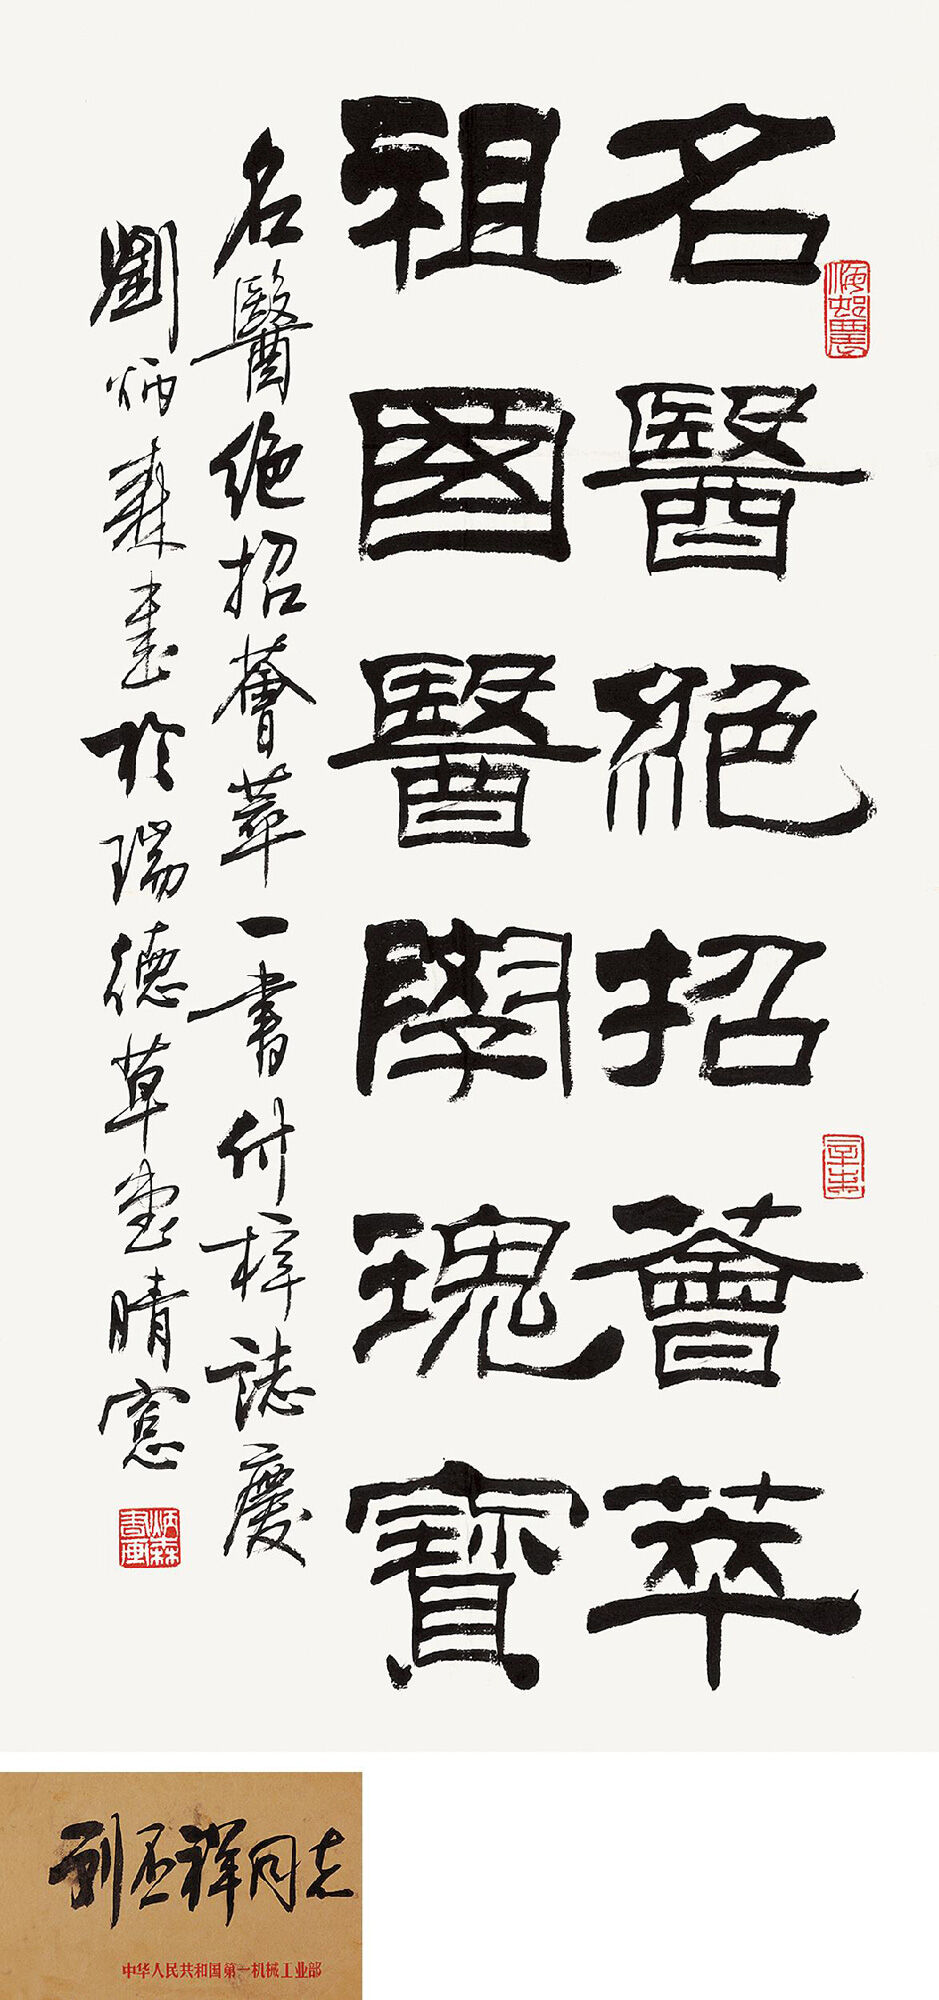 名醫絕招薈萃
祖國醫學瑰寶
名醫絕招薈萃一書付梓誌慶
劉炳森書於瑞德草堂晴窻
炳森書画
刘丕祥同志
中华人民共和国第一机械工业部